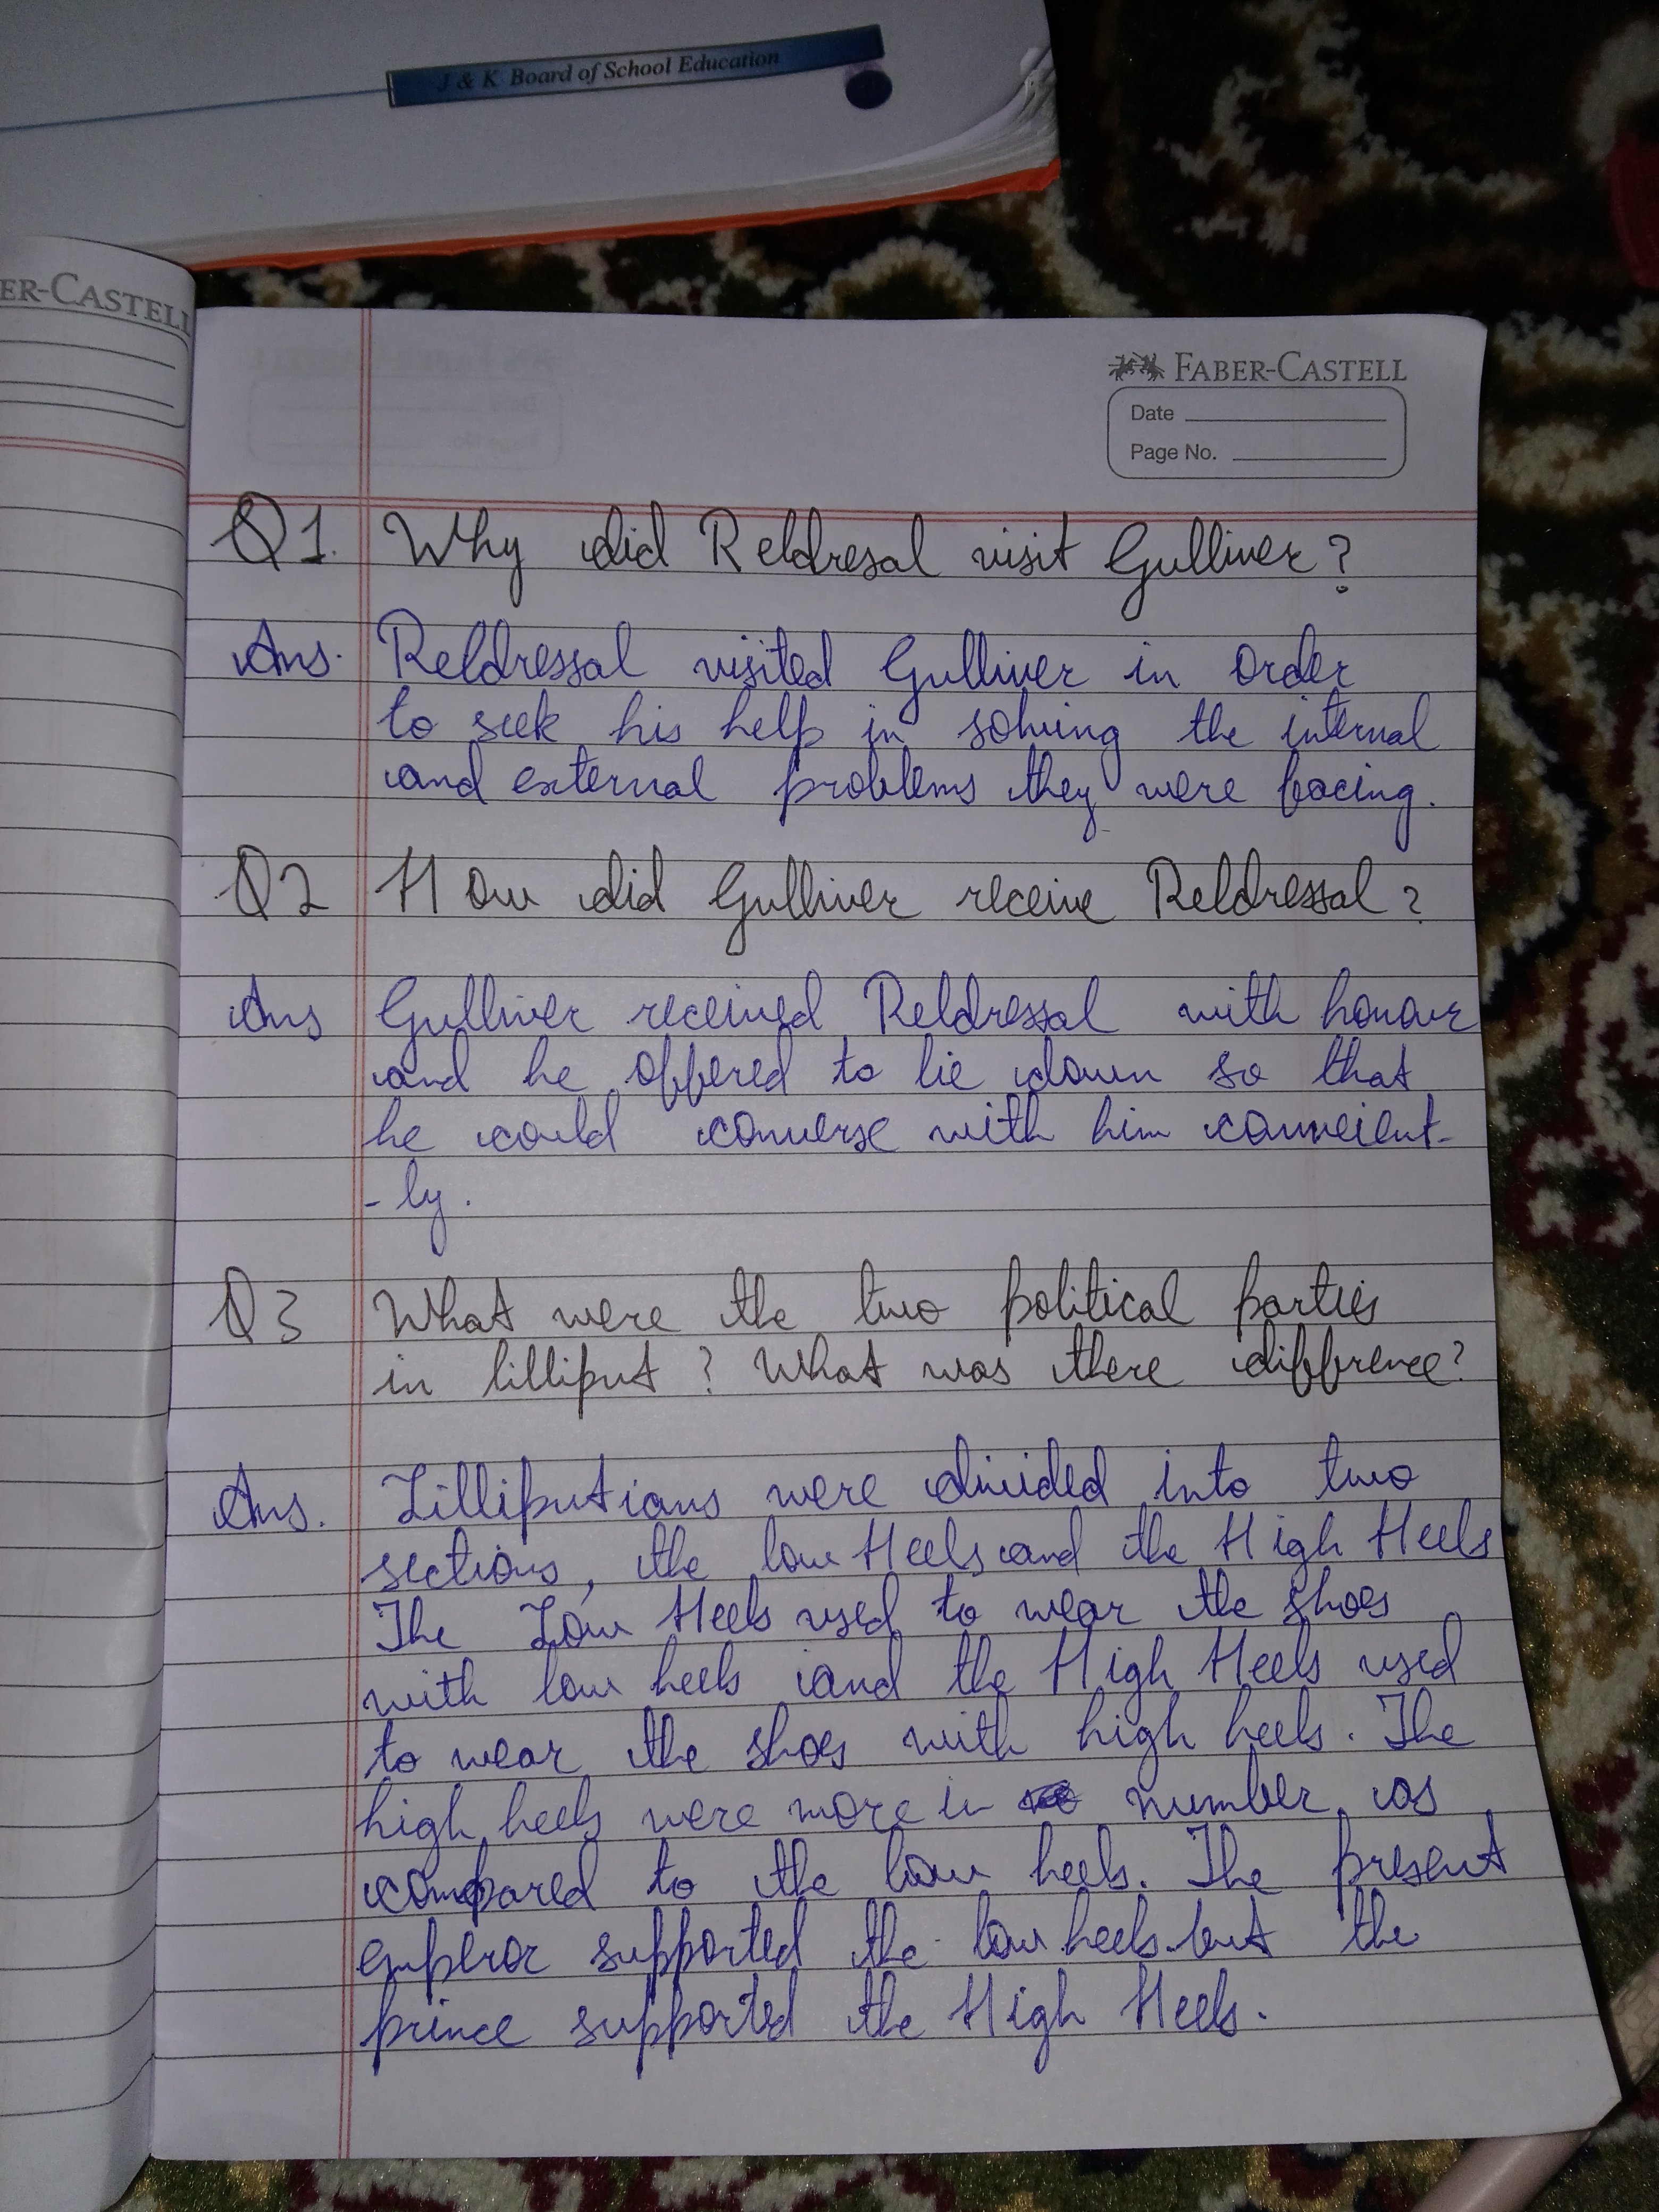 J & K Board of School Education
ER-CASTELL
FABER-CASTELL
Date
Page No.
Q1. Why did Reldresal visit Gulliver?
Ans. Reldressal visited Gulliver in order
to seek his help in solving the internal
and external problems they were facing.
Q2 How did Gulliver receive Reldressal?
Ans Gulliver received Reldressal with honour
and he offered to lie down so that
he could converse with him conveient-
-ly.
Q3 What were the two political parties
in lilliput? What was there difference?
Ans. Lilliputians were divided into two
sections, the low Heels and the High Heels
The Low Heels used to wear the shoes
with low heels and the High Heels used
to wear the shoes with high heels. The
high heels were more in number as
compared to the low heels. The present
emperor supported the low heels but the
prince supported the High Heels.